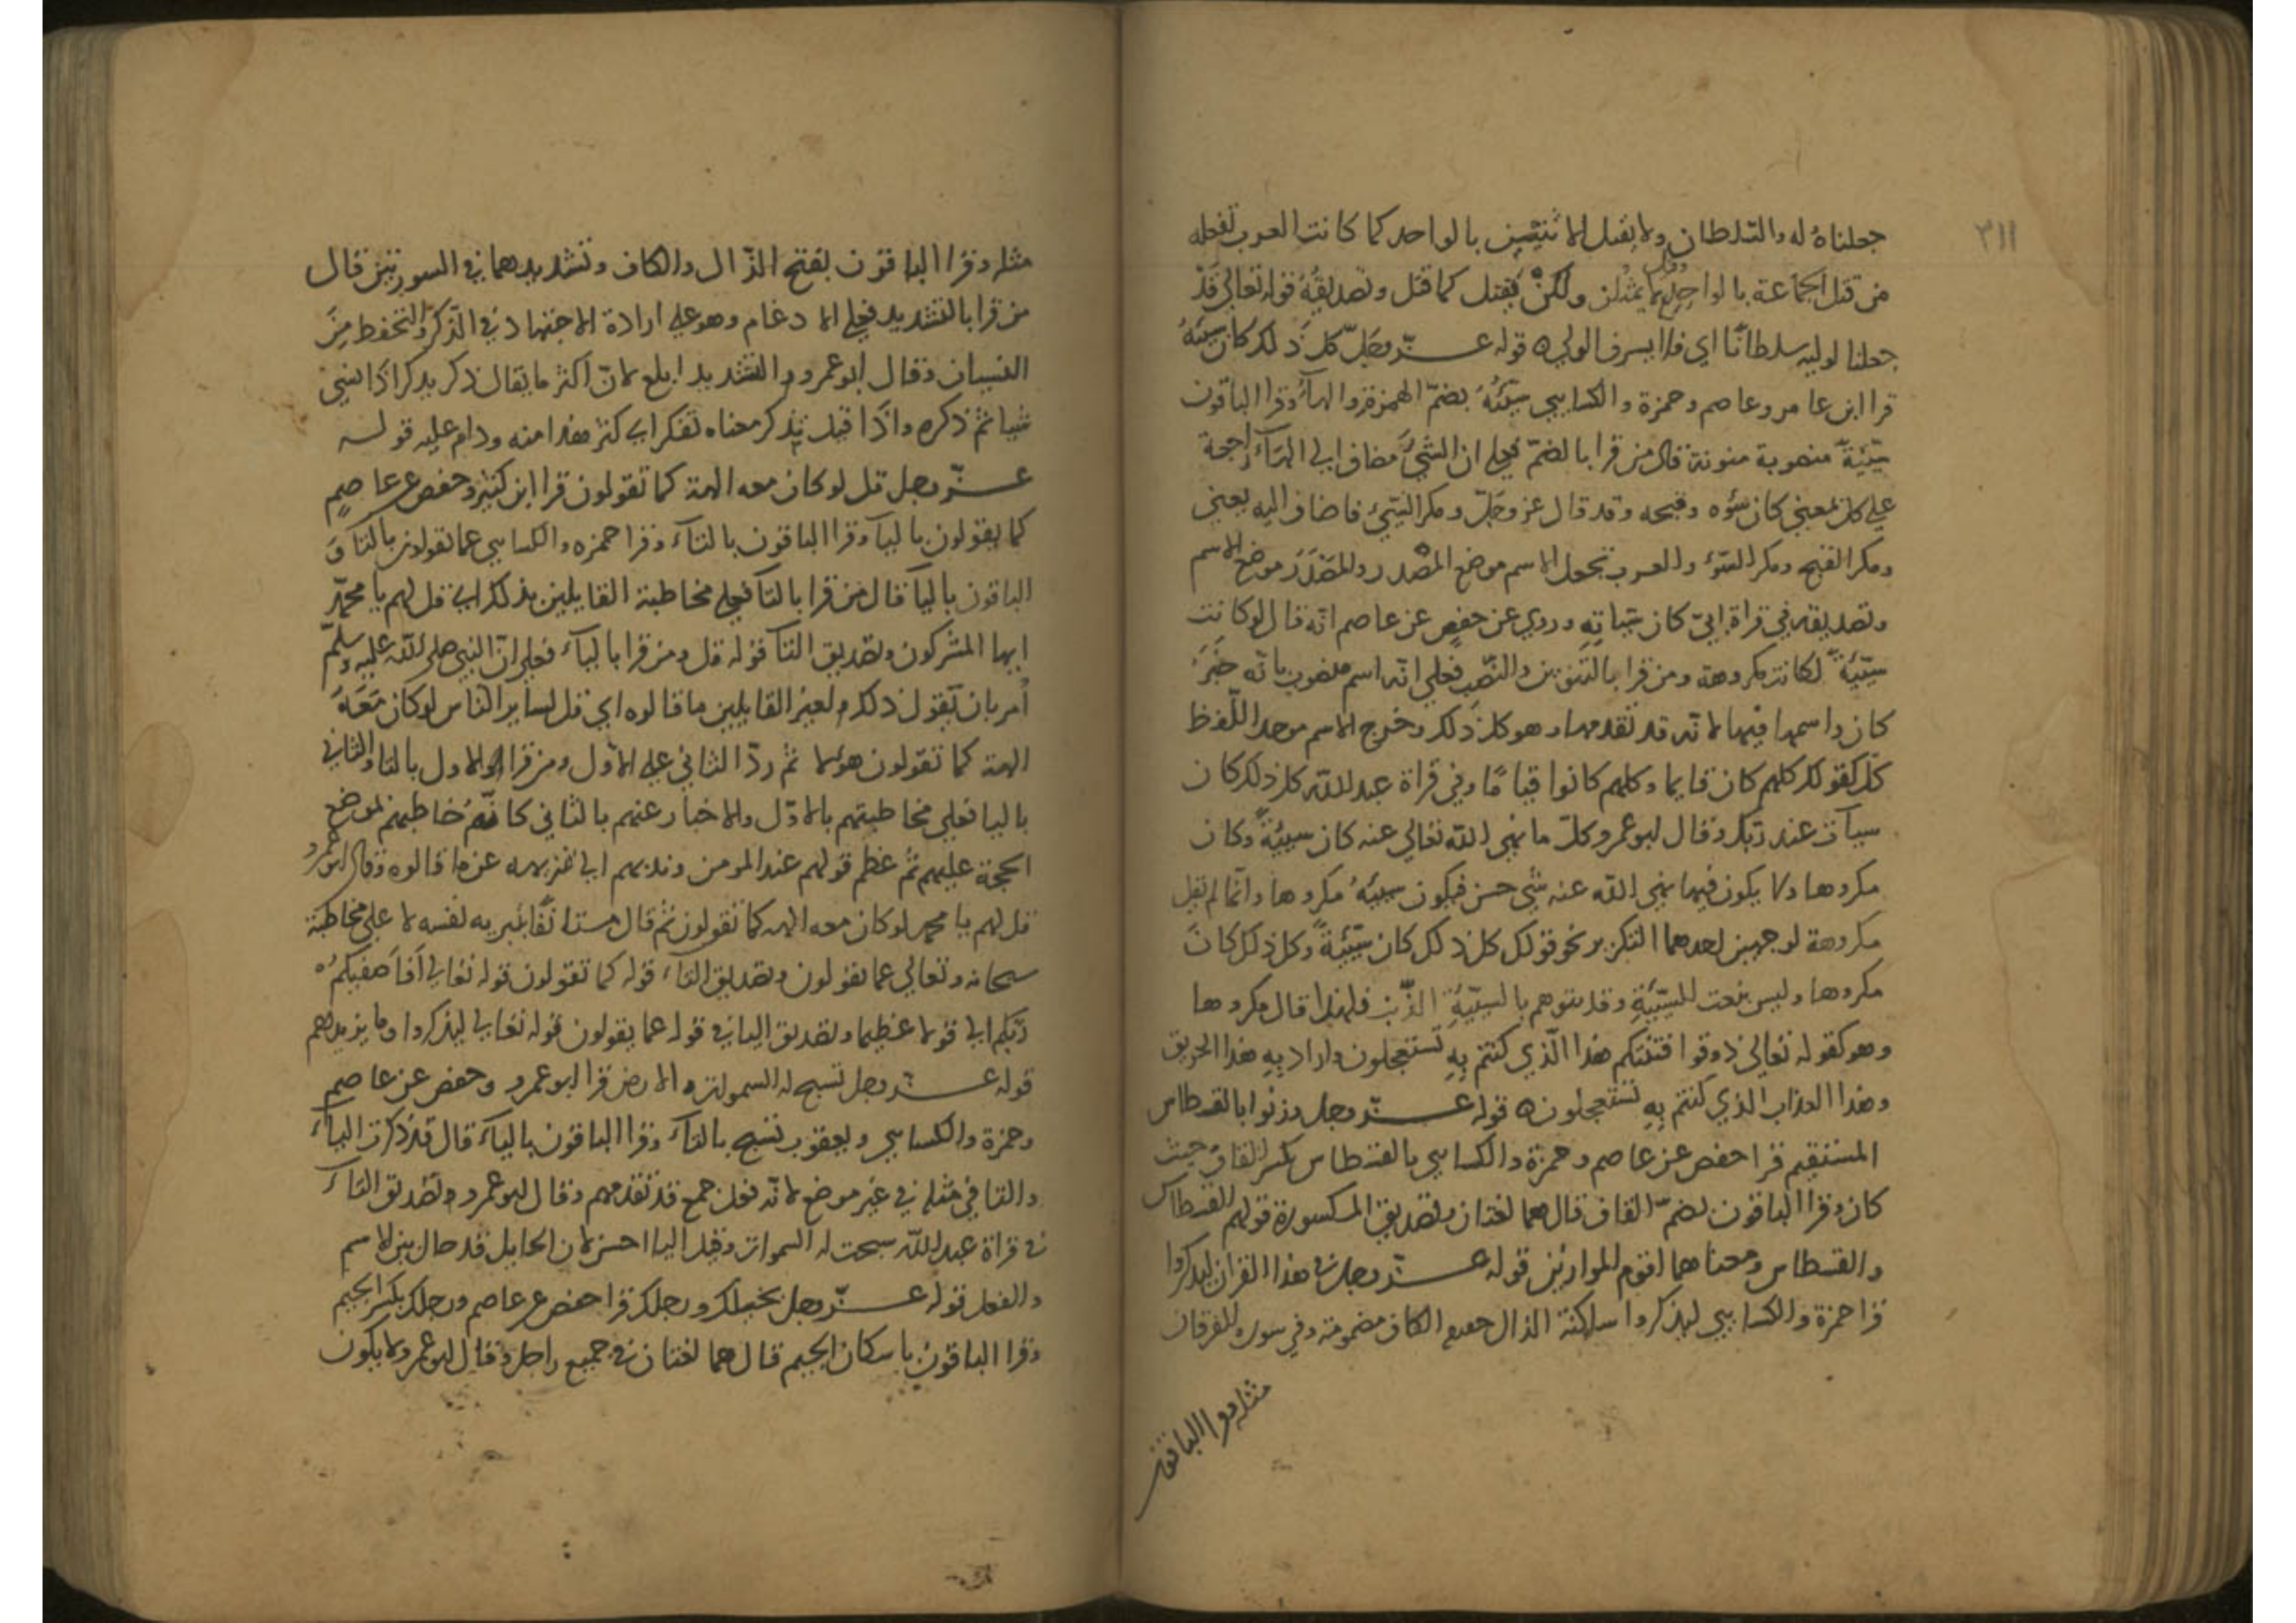 ٣١١
جعلناهُ له والسّلطان ولا يقتل الاثنين بالواحد كما كانت العرب تفعله
من قتل الجماعة بالواحد ولا يمثلن ولكنْ يُقتل كما قتل وتصديقهُ قوله تعالى فَقَدْ
جعلنا لوليه سلطانًا اي فلا يسرف الولي ه قوله عــــزّ وجلّ كل ذلك كان سيّئه
قرا ابن عامر وعاصم وحمزة والكسايي سيّئُهُ بضمّ الهمزة والهآء وقرا الباقون
سيّئةً منصوبة منونة قال من قرا بالضمّ فعلى ان الشيَّ مضاف الى الهآء راجعة
على كل بمعنى كان سُوه وقبحه وقد قال عز وجلّ ومكر السّيّئ فاضاف اليه يعني
ومكر القبح ومكر السّوء والعرب تجعل الاسم موضع المصْدر والمصْدر موضع الاسم
وتصديقه في قراة ابيّ كان سَياتِهِ وروي عن حفصٍ عن عاصم انّه قال لو كانت
سيّئةً لكانت مكروهة ومن قرا بالتنوين والنّصب فعلى انّه اسم منصوب بانّه خَبَرُ
كان واسمها فيها لانّه قد تقدمها وهو كلّ ذلك وخرج الاسم موحد اللّفظ
كلّ كقولك كلهم كان قايما وكلهم كانوا قيامًا وفي قراة عبد الله كل ذلك كان
سيآت عند ربّك وقال ابو عمرو كلّ ما نهى الله تعالى عنه كان سيئةً وكان
مكروها ولا يكون فيما نهى الله عنه شيّ حسن فيكون سيئهُ مكروها وانّما لم يقل
مكروهة لوجهين احدهما التكرير نحو قولك كل ذلك كان سيّئةً وكل ذلك كانَ
مكروها وليس بنعت للسيّئةِ وقد يتوهم بالسيّئةِ الذّنب فلهذا قال مكروها
وهو كقوله تعالى ذوقوا فتنتكم هذا الّذي كنتم بِهِ تستعجلون واراد بِهِ هذا الحريق
وهذا العذاب الذي كنتم بِهِ تستعجلون ه قوله عــــزّ وجل وزنوا بالقسطاس
المستقيم قرا حفص عن عاصم وحمزة والكسايي بالقسطاس بكسر القاف حيث
كان وقرا الباقون بضمّ القاف قال هما لغتان وتصديق المكسورة قولهم القسطاس
والقسطاس ومعناهما اقوم الموازين قوله عــــزّ وجل في هذا القران ليذكروا
قرا حمزة والكسايي ليذكروا ساكنة الذال الكاف مضمومة وفي سورة الفرقان
مثله وقرا الباقون
مثله وقرا الباقون بفتح الذّال والكاف وتشديدهما في السورتين قال
من قرا بالتشديد فعلى الادغام وهو على ارادة الاجتهاد في الذّكر والتحفظ مِنَ
النسيان وقال ابو عمرو والتشديد ابلغ لانّ اكثر ما يقال ذكر يذكر اذا نسي
شيا ثم ذكره واذَا قيل يذّكر معناه تفكر اي كثر هذا منه ودام عليه قولــه
عــــزّ وجل قل لو كان معه الهة كما تقولون قرا ابن كثير وحفص عن عاصمٍ
كما يقولون باليآء وقرا الباقون بالتآء وقرا حمزه والكسايي عما تقولون بالتآ وَ
الباقون باليآ قال من قرا بالتآ فعلى مخاطبة القايلين بذلك اي قل لهم يا محمّد
ايها المشركون وتصديق التآ قوله قل ومن قرا باليآء فعلى انّ النبي صلى الله عليه وسلّم
اُمر بان يَقول ذلك لغير القايلين ما قالوه اي قل لساير النّاس لو كان مَعَهُ
الهة كما تقولون هؤلا ثم ردّ الثاني على الاوّل ومن قرا الاول بالتا والثاني
باليا فعلى مخاطبتهم بالاوّل والاخبار عنهم بالثاني كانّهُ خاطبهم لموضع
الحجة عليهم ثم عظم قولهم عند المومن ونَدبهم الى تنزيهه عن ما قالوه وقال ابو عمرو
قل لهم يا محمد لو كان معه الهه كما تقولون ثم قال مستانفًا تنزيه لنفسه لا على مخاطبة
سبحانه وتعالى عما يقولون وتصديق التآء قوله كما تقولون قوله تعالى اَفَاَصفيكمْ
ربّكم الى قولا عظيما وتصديق اليا في قوله عما يقولون قوله تعالى ليذكروا وما يزيدهم
قوله عــــزّ وجل تسبح له السموات والارض قرا ابو عمرو وحفص عن عاصم
وحمزة والكسايي ويعقوب تسبح بالتآء وقرا الباقون باليآء قال قد ذكرت اليآء
والتا في مثله في غير موضع لانّه فعل جمع قد تقدمهم وقال ابو عمرو وتصديق التآء
في قراة عبد الله سبحت له السموات وقيل اليا احسن لان الحايل قد حال بين الاسم
والفعل قوله عــــزّ وجل بخيلك ورجلك قرا حفص عن عاصم ورجلك بكسر الجيم
وقرا الباقون باسكان الجيم قال هما لغتان في جميع راجل وقال ابو عمرو ولا يكون